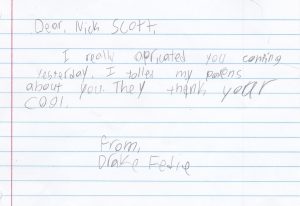 Dear, Nick Scott,
I really apricated you coming
yesterday. I tolled my parens
about you. They thank year
cool.
From,
Drake Fedie